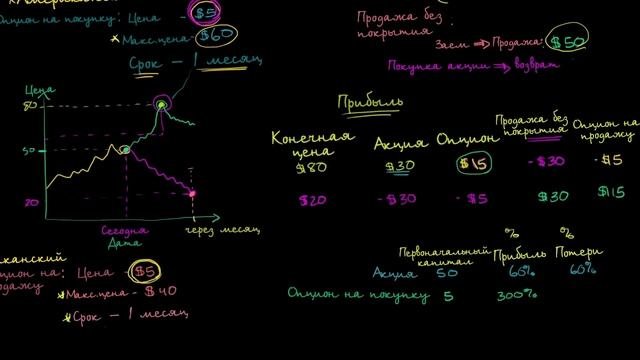 Опцион на покупку: Цена - $5
* Макс.цена - $60
Срок - 1 месяц
Продажа без
покрытия
Заем ⇒ Продажа: $50
Покупка акции ⇒ возврат
Цена
80
50
20
Сегодня
Дата
через месяц
Прибыль
Конечная цена Акция Опцион Продажа без покрытия Опцион на продажу
$80 $30 $15 -$30 -$5
$20 -$30 -$5 $30 $15
Цена - $5
* Макс.цена - $40
* Срок - 1 месяц
Первоначальный капитал % Прибыль % Потери
Акция 50 60% 60%
Опцион на покупку 5 300%